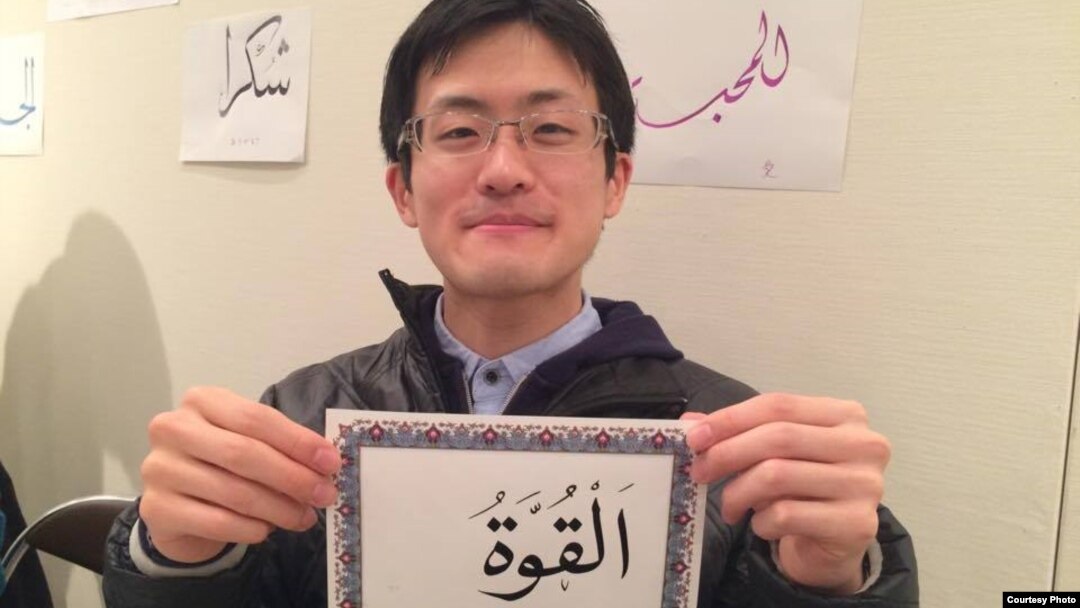 شكرا
المحبة
اَلْقُوَّةُ
Courtesy Photo